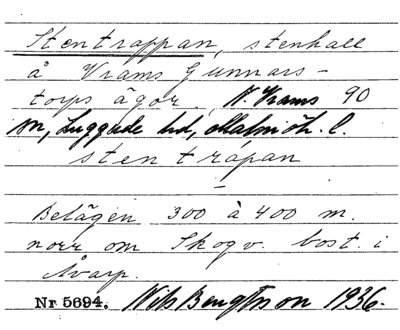 Stentrappan, stenhall
å Vrams Gunnars-
torps ägor. N. Vrams 90
sn, Luggude hd, Malmöh. l.
stentrápan
Belägen 300 à 400 m.
norr om Skogv. bost. i
Åvarp.
Nr 5694. Nils Bengtsson 1936.